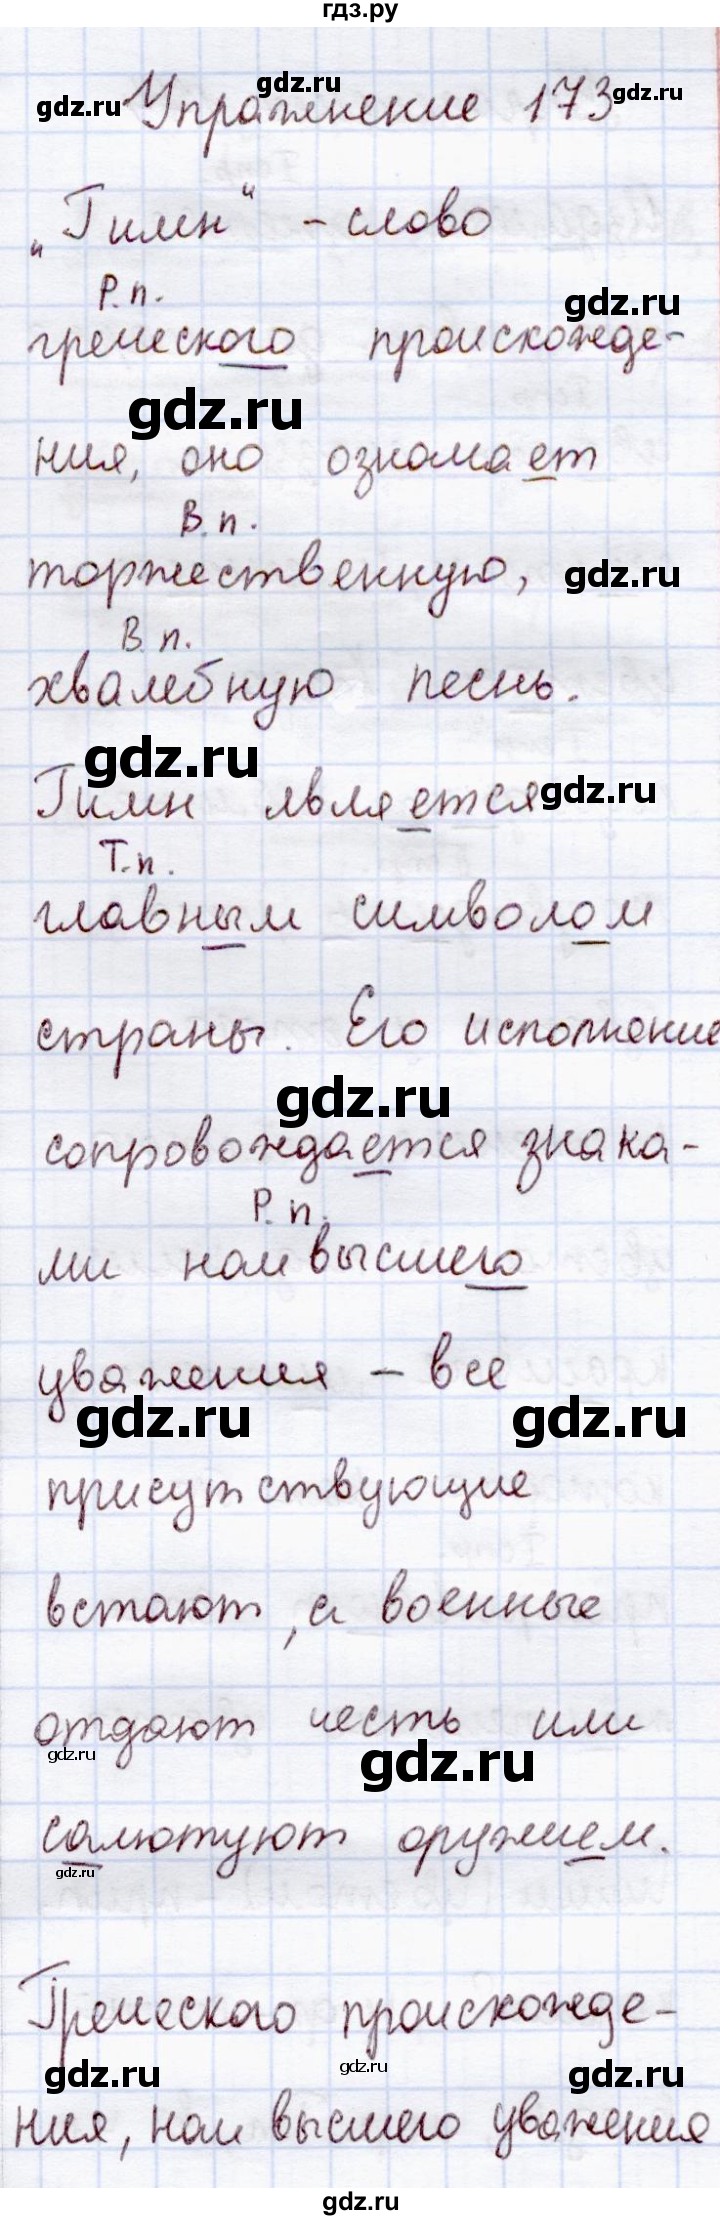 гдз.ру
gdz.ru gdz.ru gdz.ru
Упражнение 173
„Гимн“ – слово
Р.п.
gdz.ru
греческого происхожде-
gdz.ru
ния, оно означает
В.п.
торжественную,
gdz.ru
В.п.
хвалебную песнь.
gdz.ru
Гимн является
gdz.ru
Т.п.
главным символом
страны. Его исполнение
gdz.ru
сопровождается знака-
Р.п.
ми наивысшего
уважения – все
gdz.ru gdz.ru
присутствующие
встают, а военные
отдают честь или
gdz.ru gdz.ru
салютуют оружием.
gdz.ru
Греческого происхожде-
gdz.ru gdz.ru gdz.ru
ния, наивысшего уважения
gdz.ru